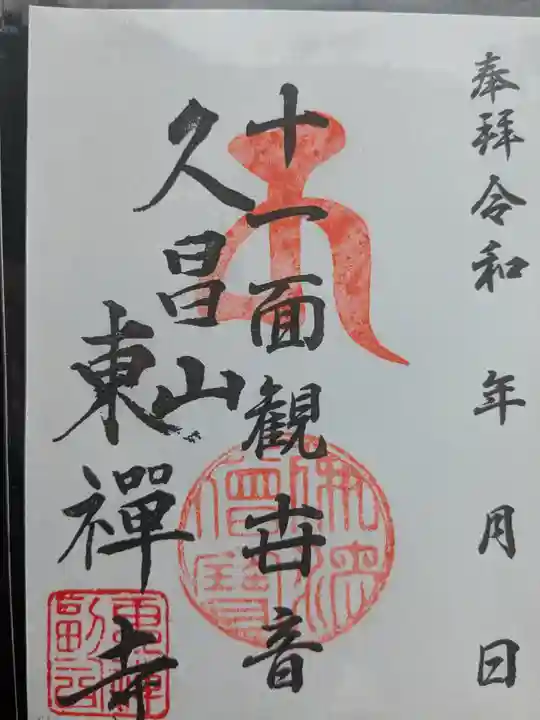 奉拜令和 年 月 日
十一面観世音
久昌山
東禪寺